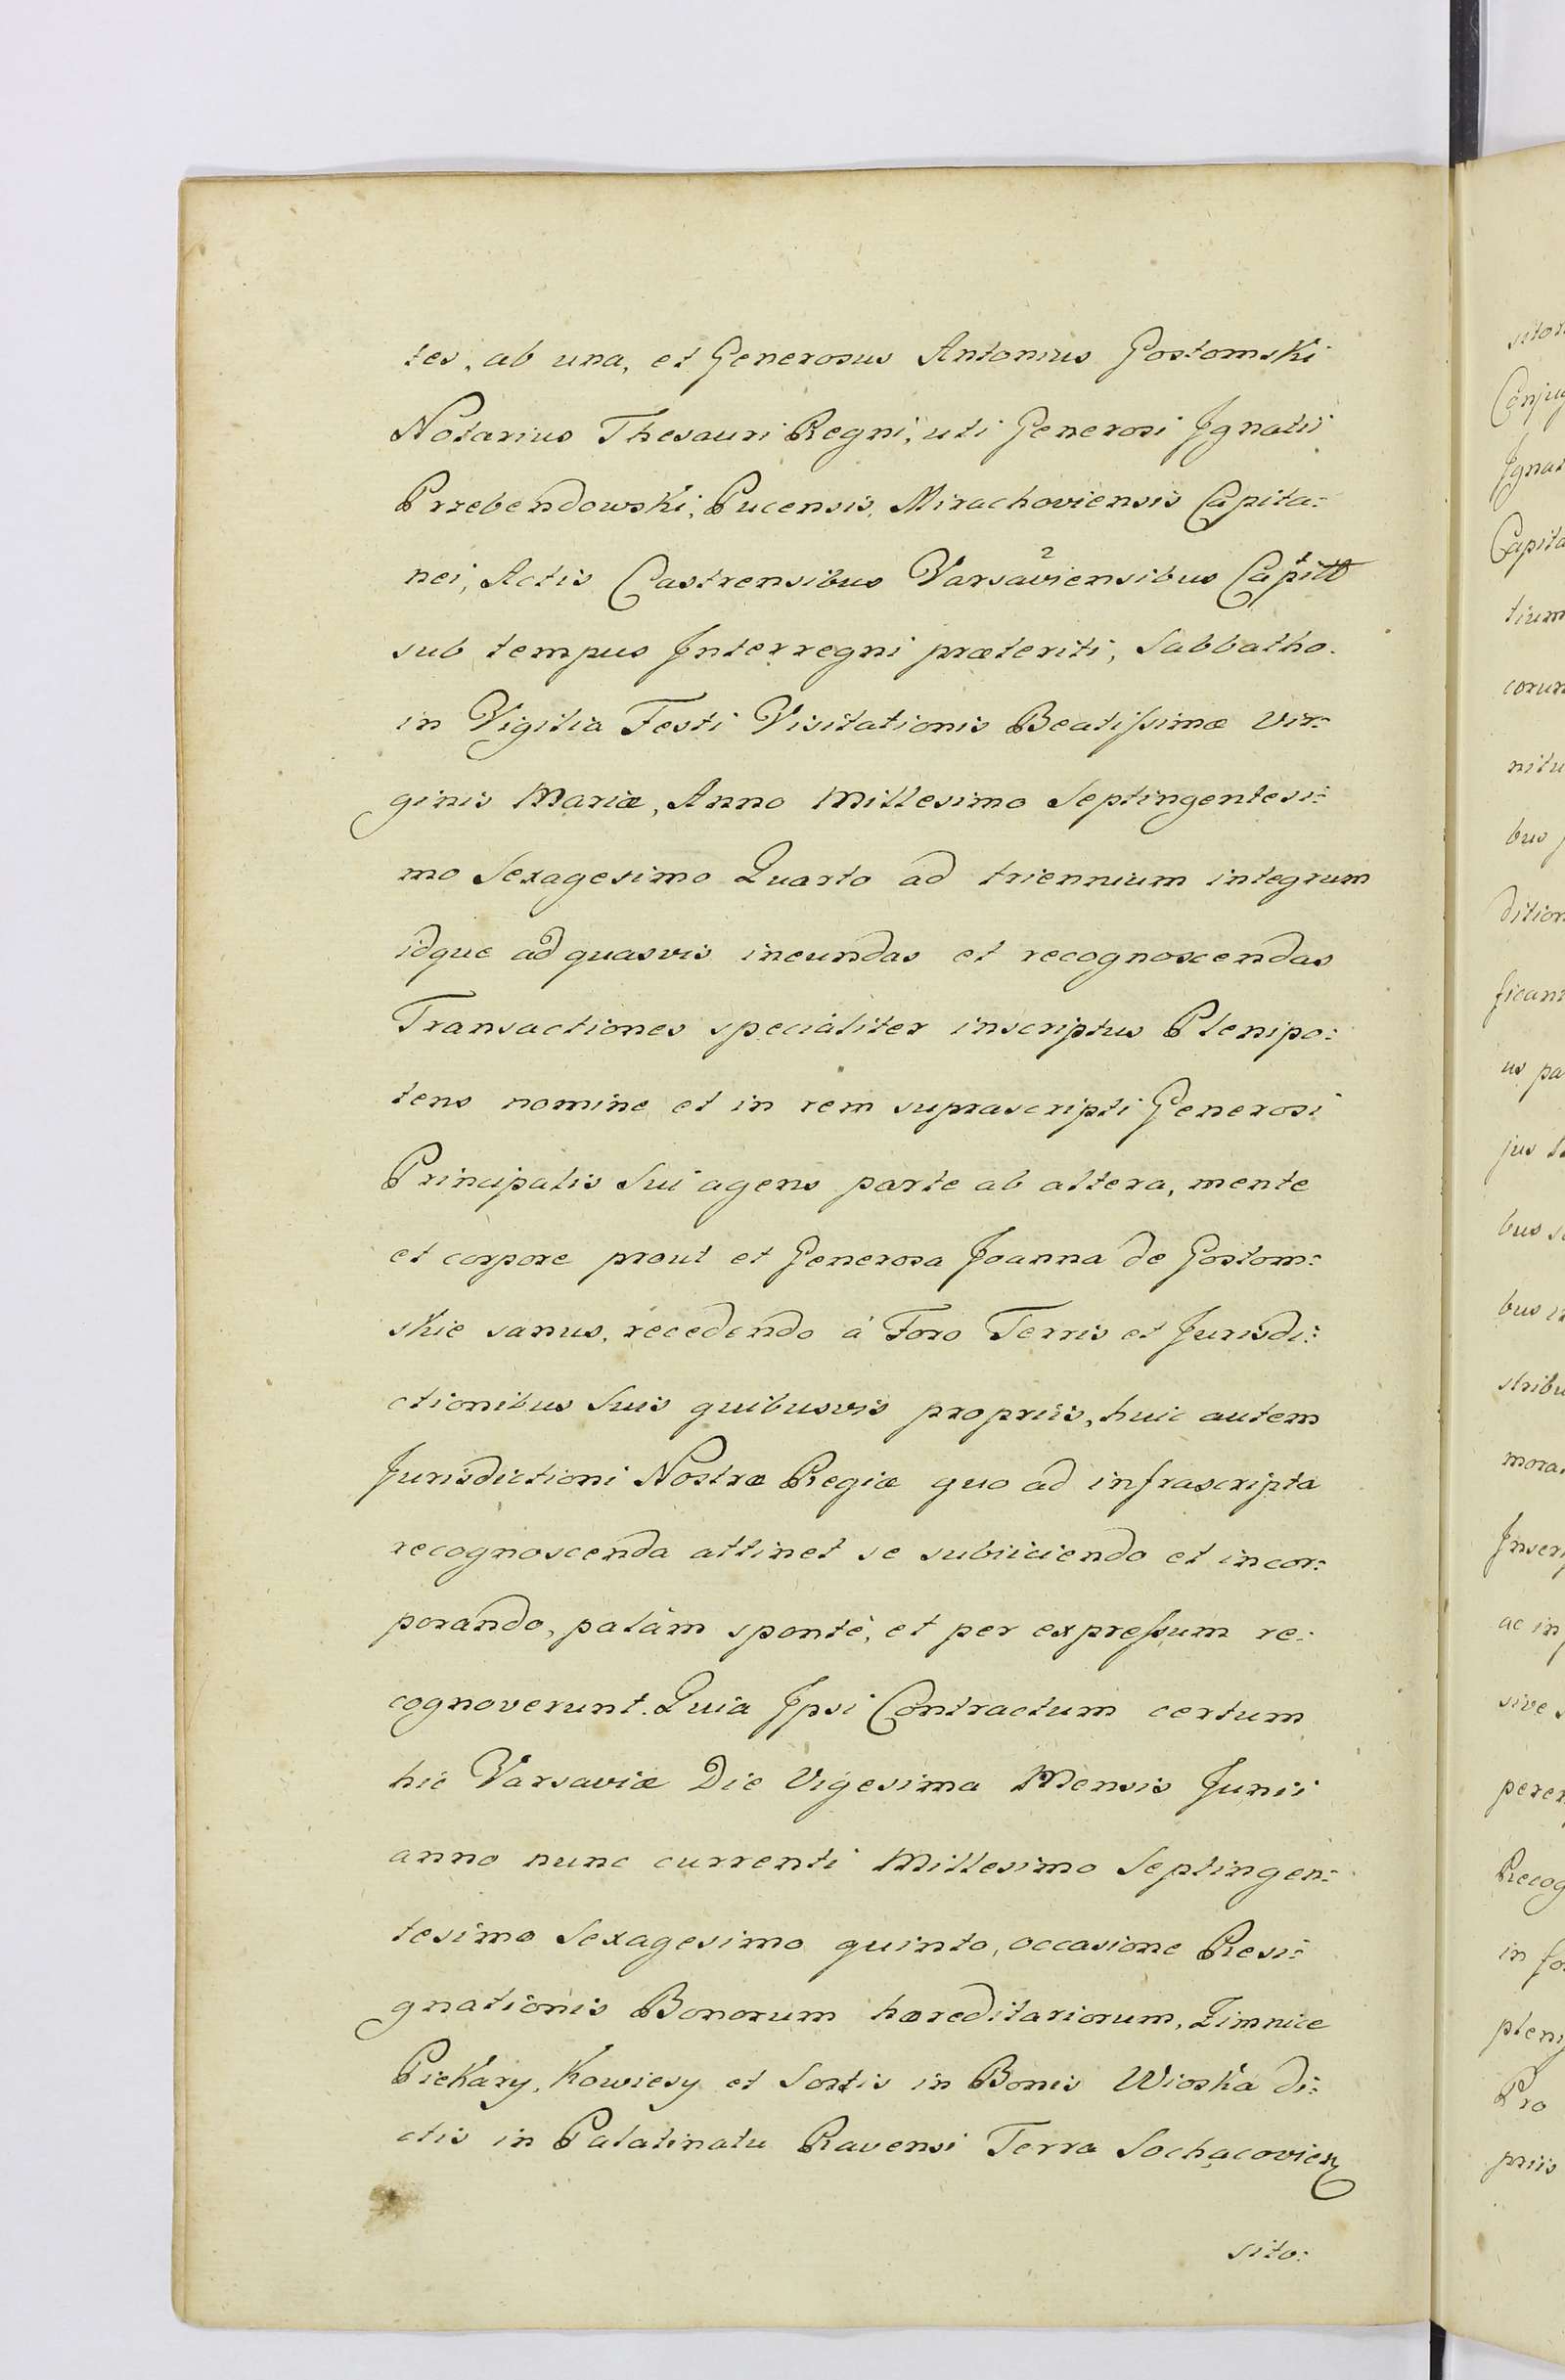 tes, ab una, et Generosus Antonius Gostomski
Notarius Thesauri Regni, uti Generosi Jgnatii
Przebendowski, Pucensis, Mirachoviensis Capita:
nei, Actis Castrensibus Varsaviensibus Capitt
sub tempus Jnterregni præteriti, Sabbatho
in Vigilia Festi Visitationis Beatissimæ Vir:
ginis Mariæ, Anno Millesimo Septingentesi:
mo Sexagesimo Quarto ad triennium integrum
idque ad quasvis ineundas et recognoscendas
Transactiones specialiter inscriptus Plenipo:
tens nomine et in rem suprascripti Generosi
Principalis Sui agens parte ab altera, mente
et corpore prout et Generosa Joanna de Gostom:
skie sanus, recedendo à Foro Terris et Jurisdi:
ctionibus Suis quibusvis propriis, huic autem
Jurisdictioni Nostræ Regiæ quo ad infrascripta
recognoscenda attinet se subiiciendo et incor:
porando, palàm spontè, et per expressum re:
cognoverunt. Quia Jpsi Contractum certum
hic Varsaviæ Die Vigesima Mensis Junii
anno nunc currenti Millesimo Septingen:
tesimo Sexagesimo quinto, occasione Resi:
gnationis Bonorum hæreditariorum, Zimnice
Piekary, Kowiesy et Sortis in Bonis Wioska di:
ctis in Palatinatu Ravensi Terra Sochacovien
sito: